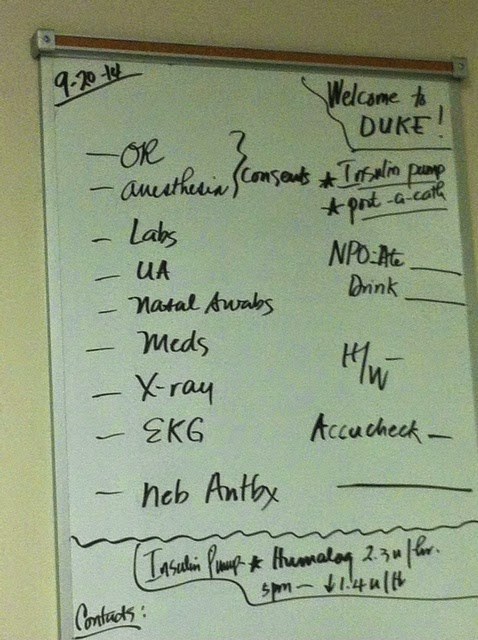 9-20-14
Welcome to
DUKE!
— OR
— anesthesia } Consents
★ Insulin pump
★ port-a-cath
— Labs
— UA
— Nasal Swabs
— Meds
— X-ray
— EKG
— Neb Antbx
NPO-Ate ____
Drink ____
H/W —
Accucheck —
Insulin Pump ★ Humalog 2.3u/hr.
5pm — ↓1.4u/H
Contacts: